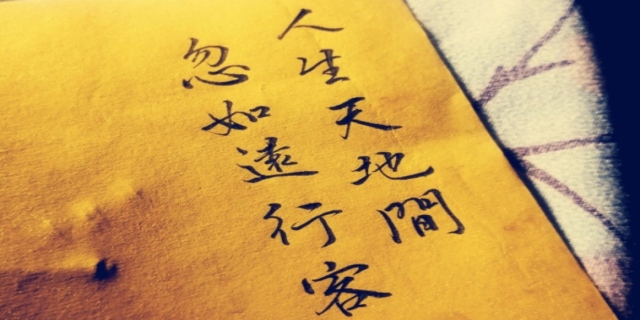 人生天地間
忽如遠行客